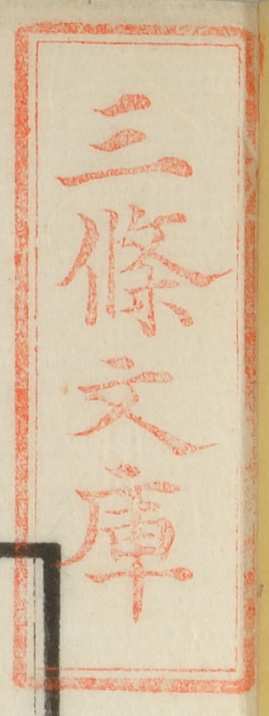 三條文庫